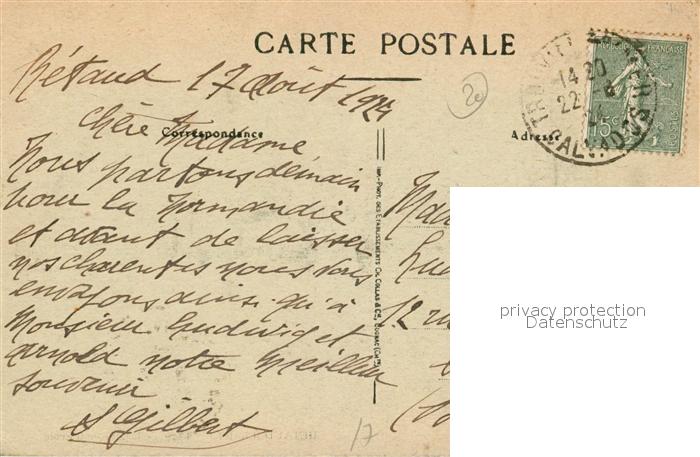 CARTE POSTALE
RÉPUBLIQUE FRANÇAISE
15c
14 20
22 8
CALVADOS
Rétaud 17 Août 1924
20
Correspondance
Adresse
Chère Madame
Nous partons demain
pour la Normandie
et avant de laisser
nos charentes nous vous
envoyons ainsi qu'à
Monsieur Ludwig et
Arnold notre meilleur
souvenir
S Gilbert
IMP.-PHOT. DES ETABLISSEMENTS CH. COLLAS & Cie, COGNAC (Chte)
Mad
Lud
12
17
privacy protection
Datenschutz